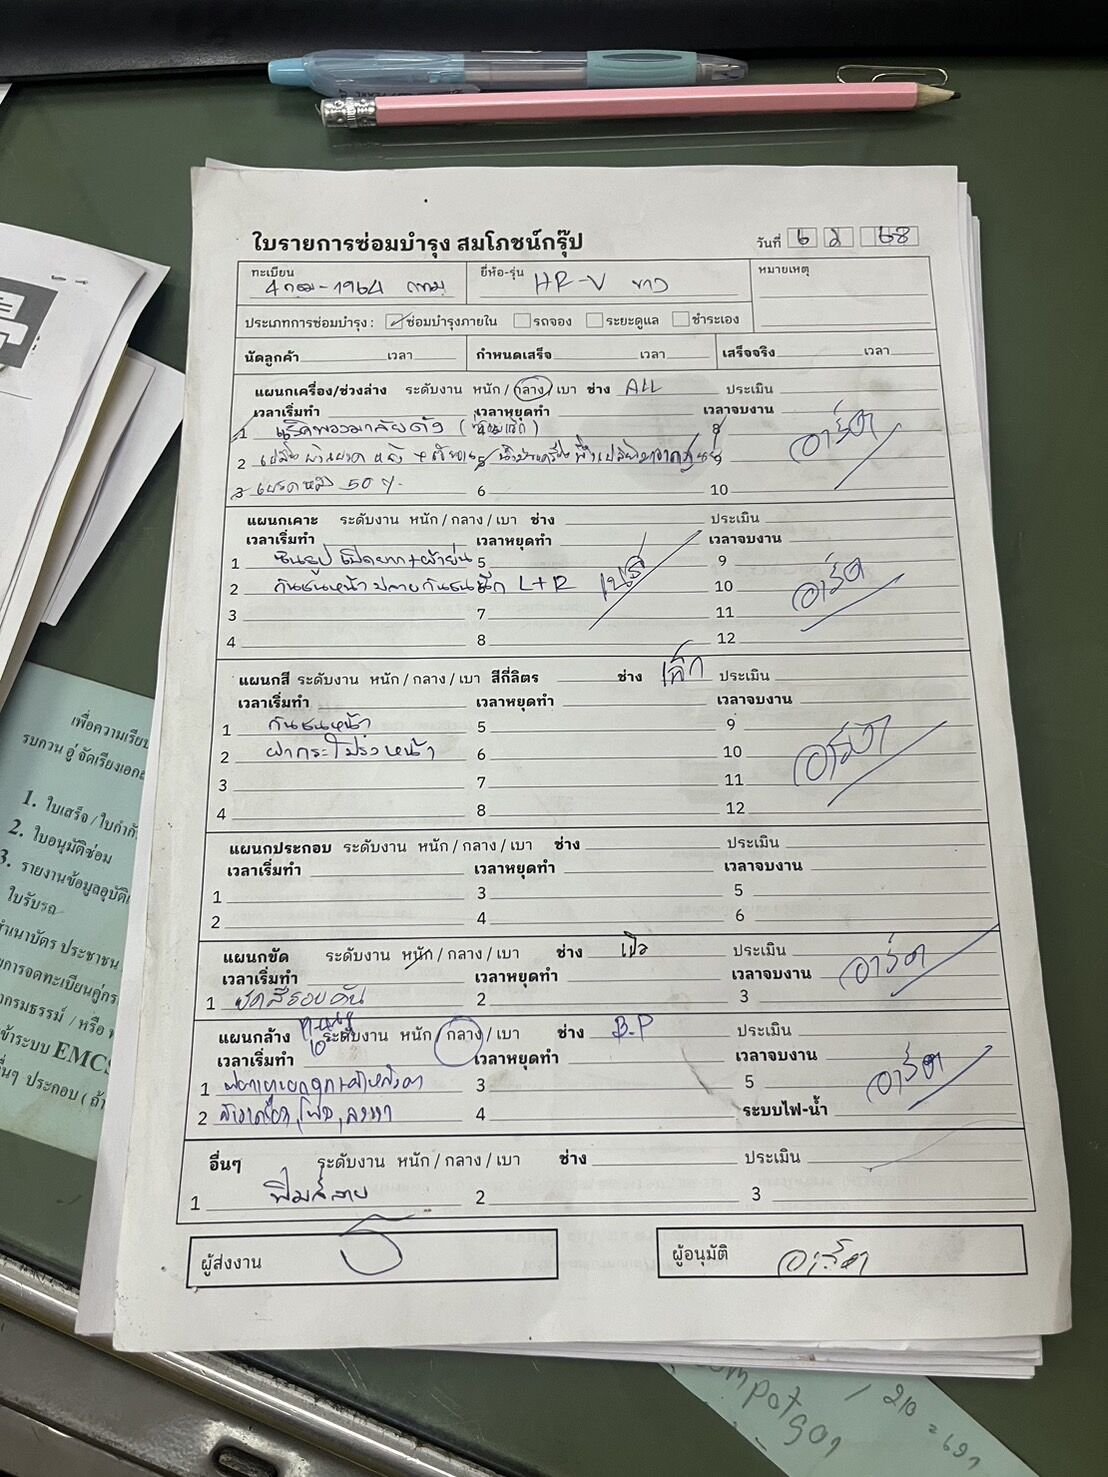 ใบรายการซ่อมบำรุง สมโภชน์กรุ๊ป
วันที่ 6 2 68
ทะเบียน 4กฌ-1964 กทม
ยี่ห้อ-รุ่น HR-V ขาว
หมายเหตุ
ประเภทการซ่อมบำรุง : ซ่อมบำรุงภายใน รถจอง ระยะดูแล ชำระเอง
นัดลูกค้า เวลา กำหนดเสร็จ เวลา เสร็จจริง เวลา
แผนกเครื่อง/ช่วงล่าง ระดับงาน หนัก / กลาง / เบา ช่าง ALL ประเมิน
เวลาเริ่มทำ เวลาหยุดทำ เวลาจบงาน
1 เช็คพวงมาลัยดัง 8
2 9
3 เบรคหลัง 50 % 6 10
อาร์ต
แผนกเคาะ ระดับงาน หนัก / กลาง / เบา ช่าง ประเมิน
เวลาเริ่มทำ เวลาหยุดทำ เวลาจบงาน
1 5 9
2 กันชนหน้า ปลายกันชน L+R 10
3 7 11
4 8 12
อาร์ต
แผนกสี ระดับงาน หนัก / กลาง / เบา สีกี่ลิตร ช่าง เล็ก ประเมิน
เวลาเริ่มทำ เวลาหยุดทำ เวลาจบงาน
1 กันชนหน้า 5 9
2 ฝากระโปรงหน้า 6 10
3 7 11
4 8 12
อาร์ต
แผนกประกอบ ระดับงาน หนัก / กลาง / เบา ช่าง ประเมิน
เวลาเริ่มทำ เวลาหยุดทำ เวลาจบงาน
1 3 5
2 4 6
แผนกขัด ระดับงาน หนัก / กลาง / เบา ช่าง ประเมิน
เวลาเริ่มทำ เวลาหยุดทำ เวลาจบงาน
1 ขัดสีรอบคัน 2 3
อาร์ต
แผนกล้าง ระดับงาน หนัก / กลาง / เบา ช่าง B.P ประเมิน
เวลาเริ่มทำ เวลาหยุดทำ เวลาจบงาน
1 3 5
2 4 ระบบไฟ-น้ำ
อาร์ต
อื่นๆ ระดับงาน หนัก / กลาง / เบา ช่าง ประเมิน
1 ฟิมล์ลาย 2 3
ผู้ส่งงาน
ผู้อนุมัติ อาร์ต
เพื่อความเรียบ
รบกวน อู่ จัดเรียงเอกส
1. ใบเสร็จ / ใบกำกั
2. ใบอนุมัติซ่อม
3. รายงานข้อมูลอุบัติเ
ใบรับรถ
สำเนาบัตร ประชาชน
การจดทะเบียนคู่กร
ากรมธรรม์ / หรือ ท
ข้าระบบ EMCS
อื่นๆ ประกอบ ( ถ้า
/ 210 = 691